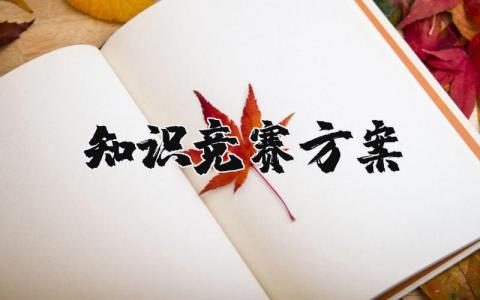 知识竞赛方案